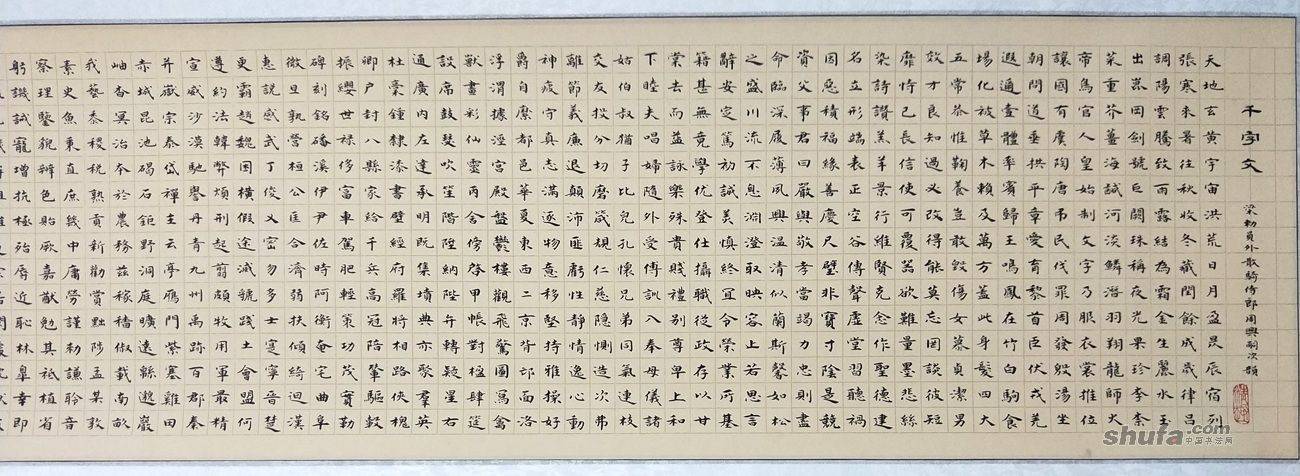 千字文
梁敕員外散騎侍郎周興嗣次韻
天地玄黃宇宙洪荒日月盈昃辰宿列
張寒來暑往秋收冬藏閏餘成歲律呂
調陽雲騰致雨露結為霜金生麗水玉
出崑岡劍號巨闕珠稱夜光果珍李柰
菜重芥薑海鹹河淡鱗潛羽翔龍師火
帝鳥官人皇始制文字乃服衣裳推位
讓國有虞陶唐弔民伐罪周發殷湯坐
朝問道垂拱平章愛育黎首臣伏戎羌
遐邇壹體率賓歸王鳴鳳在竹白駒食
場化被草木賴及萬方蓋此身髮四大
五常恭惟鞠養豈敢毀傷女慕貞潔男
效才良知過必改得能莫忘罔談彼短
靡恃己長信使可覆器欲難量墨悲絲
染詩讚羔羊景行維賢克念作聖德建
名立形端表正空谷傳聲虛堂習聽禍
因惡積福緣善慶尺璧非寶寸陰是競
資父事君曰嚴與敬孝當竭力忠則盡
命臨深履薄夙興溫清似蘭斯馨如松
之盛川流不息淵澄取映容止若思言
辭安定篤初誠美慎終宜令榮業所基
籍甚無竟學優登仕攝職從政存以甘
棠去而益詠樂殊貴賤禮別尊卑上和
下睦夫唱婦隨外受傅訓入奉母儀諸
姑伯叔猶子比兒孔懷兄弟同氣連枝
交友投分切磨箴規仁慈隱惻造次弗
離節義廉退顛沛匪虧性靜情逸心動
神疲守真志滿逐物意移堅持雅操好
爵自縻都邑華夏東西二京背邙面洛
浮渭據涇宮殿盤鬱樓觀飛驚圖寫禽
獸畫彩仙靈丙舍傍啓甲帳對楹肆筵
設席鼓瑟吹笙階陞納陛弁轉疑星右
通廣內左達承明既集墳典亦聚羣英
杜稾鍾隸漆書壁經府羅將相路俠槐
卿戶封八縣家給千兵高冠陪輦驅轂
振纓世祿侈富車駕肥輕策功茂實勒
碑刻銘磻溪伊尹佐時阿衡奄宅曲阜
微旦孰營桓公匡合濟弱扶傾綺迴漢
惠說感武丁俊乂密勿多士寔寧晉楚
更霸趙魏困橫假途滅虢踐土會盟何
遵約法韓弊煩刑起翦頗牧用軍最精
宣威沙漠馳譽丹青九州禹跡百郡秦
并嶽宗泰岱禪主云亭雁門紫塞雞田
赤城昆池碣石鉅野洞庭曠遠緜邈巖
岫杳冥治本於農務茲稼穡俶載南畝
我藝黍稷稅熟貢新勸賞黜陟孟軻敦
素史魚秉直庶幾中庸勞謙謹勅聆音
察理鑒貌辨色貽厥嘉猷勉其祗植省
躬譏誡寵增抗極殆辱近恥林皋幸即
shufa.com
中国书法网